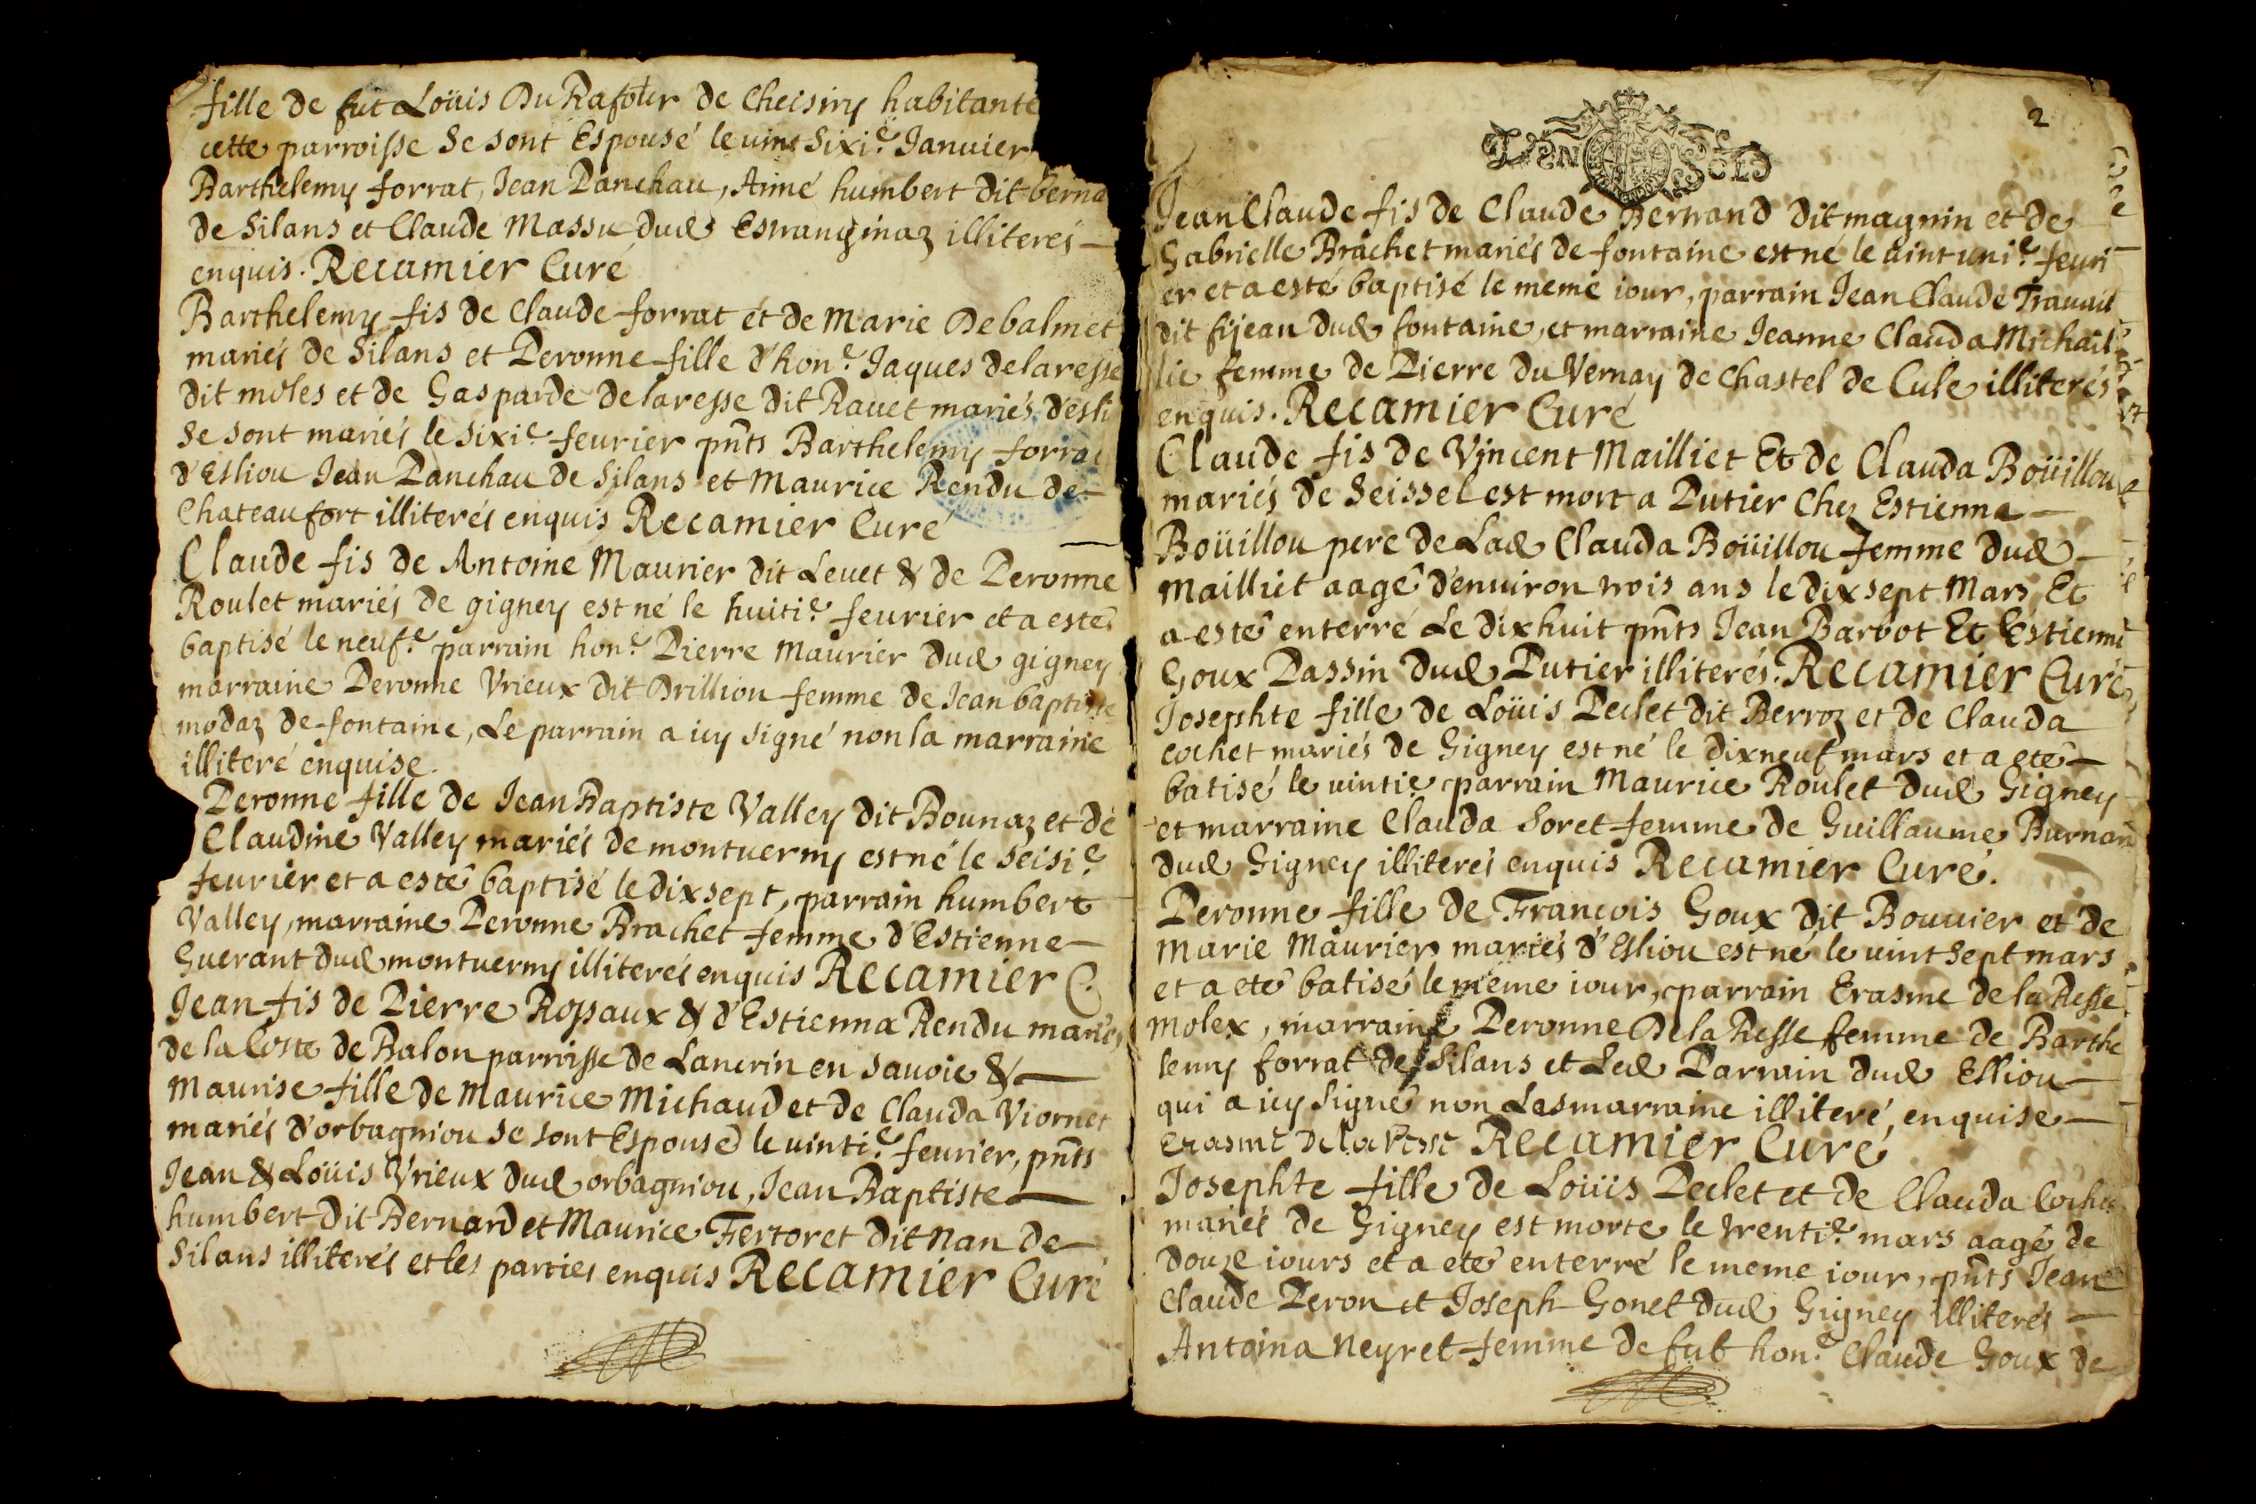 fille de fut Loüis Du Rafour de Cheisiry habitante
cette parroisse se sont Espousé le vint sixi.e Ianuier
Barthelemy forrat, Iean Panchau, Aimé humbert dit berna
de Silans et Claude Massu dud Estranginaz illiterés
enquis. Recamier Curé
Barthelemy fis de Claude forrat et de Marie Debalmet
mariés de Silans et Peronne fille d'hon.e Iaques delaresse
dit moles et de Gasparde delaresse dit Rauet mariés d'Esli
se sont mariés le sixi.e feurier pñts Barthelemy forrat
d'Esliou Iean Panchau de Silans et Maurice Rendu de
Chateaufort illiterés enquis Recamier Curé
Claude fis de Antoine Maurier dit Leuet & de Peronne
Roulet mariés de gigney est né le huiti.e feurier et a esté
baptisé le neuf.e parrain hon.e Pierre Maurier dud gigney
marraine Peronne Vrieux dit Drillion femme de Iean baptiste
modaz de fontaine, Le parrain a icy signé non la marraine
illiteré enquise.
Peronne fille de Iean Baptiste Valley dit Bounaz et de
Claudine Valley mariés de montuerny est né le seisi.e
feurier et a esté baptisé le dixsept, parrain humbert
Valley, marraine Peronne Brachet femme d'Estienne
Guerant dud montuerny illiterés enquis Recamier C.
Jean fis de Pierre Rossaux & d'Estienna Rendu mariés
de la Coste de Balon parroisse de Lancrin en Sauoie &
Maurise fille de Maurice Michaud et de Clauda Viornet
mariés d'orbagniou se sont Espousé le uinti.e feurier, pñts
Jean & Loüis Vrieux dud orbagniou, Iean Baptiste
humbert dit Bernard et Maurice Fertoret dit Nan de
Silans illiterés et les parties enquis Recamier Curé
2
Iean Claude fis de Claude Bertrand dit magnin et de
Gabrielle Brachet mariés de fontaine est né le uint uni.e feuri
er et a esté baptisé le meme iour, parrain Iean Claude Trauail
dit fijean dud fontaine, et marraine Ieanne Clauda Michail
lie femme de Pierre du Vernay de Chastel de Cule illiterés
enquis. Recamier Curé
Claude fis de Vincent Mailliet Et de Clauda Boüillou
mariés de Seissel est mort a Putier Chez Estienne
Boüillou pere de Lad Clauda Boüillou femme dud
Mailliet aagé d'enuiron trois ans le dixsept Mars Et
a esté enterré Le dixhuit pñts Iean Barbot Et Estienne
Goux Passin dud Putier illiterés. Recamier Curé
Josephte fille de Loüis Peclet dit Berroz et de Clauda
cochet mariés de Gigney est né le dixneuf mars et a eté
batisé le uinti.e parrain Maurice Roulet dud Gigney
et marraine Clauda Soret femme de Guillaume Burnan
dud Gigney illiterés enquis Recamier Curé.
Peronne fille de François Goux dit Bouuier et de
Marie Maurier mariés d'Esliou est né le uint sept mars
et a eté batisé le meme iour, parrain Erasme de la Resse
Molex, marraine Peronne De la Resse femme de Barthe
lemy forrat de Silans et Led Parrain dud Esliou
qui a icy signé non Les marraine illiteré, enquise
Erasme De la Resse Recamier Curé
Josephte fille de Loüis Peclet et de Clauda Cochet
mariés de Gigney est morte le trenti.e mars aagé de
douze iours et a eté enterré le meme iour, pñts Iean
Claude Peron et Joseph Gonet dud Gigney illiterés
Antoina Neyret femme de fut hon.e Claude Goux de